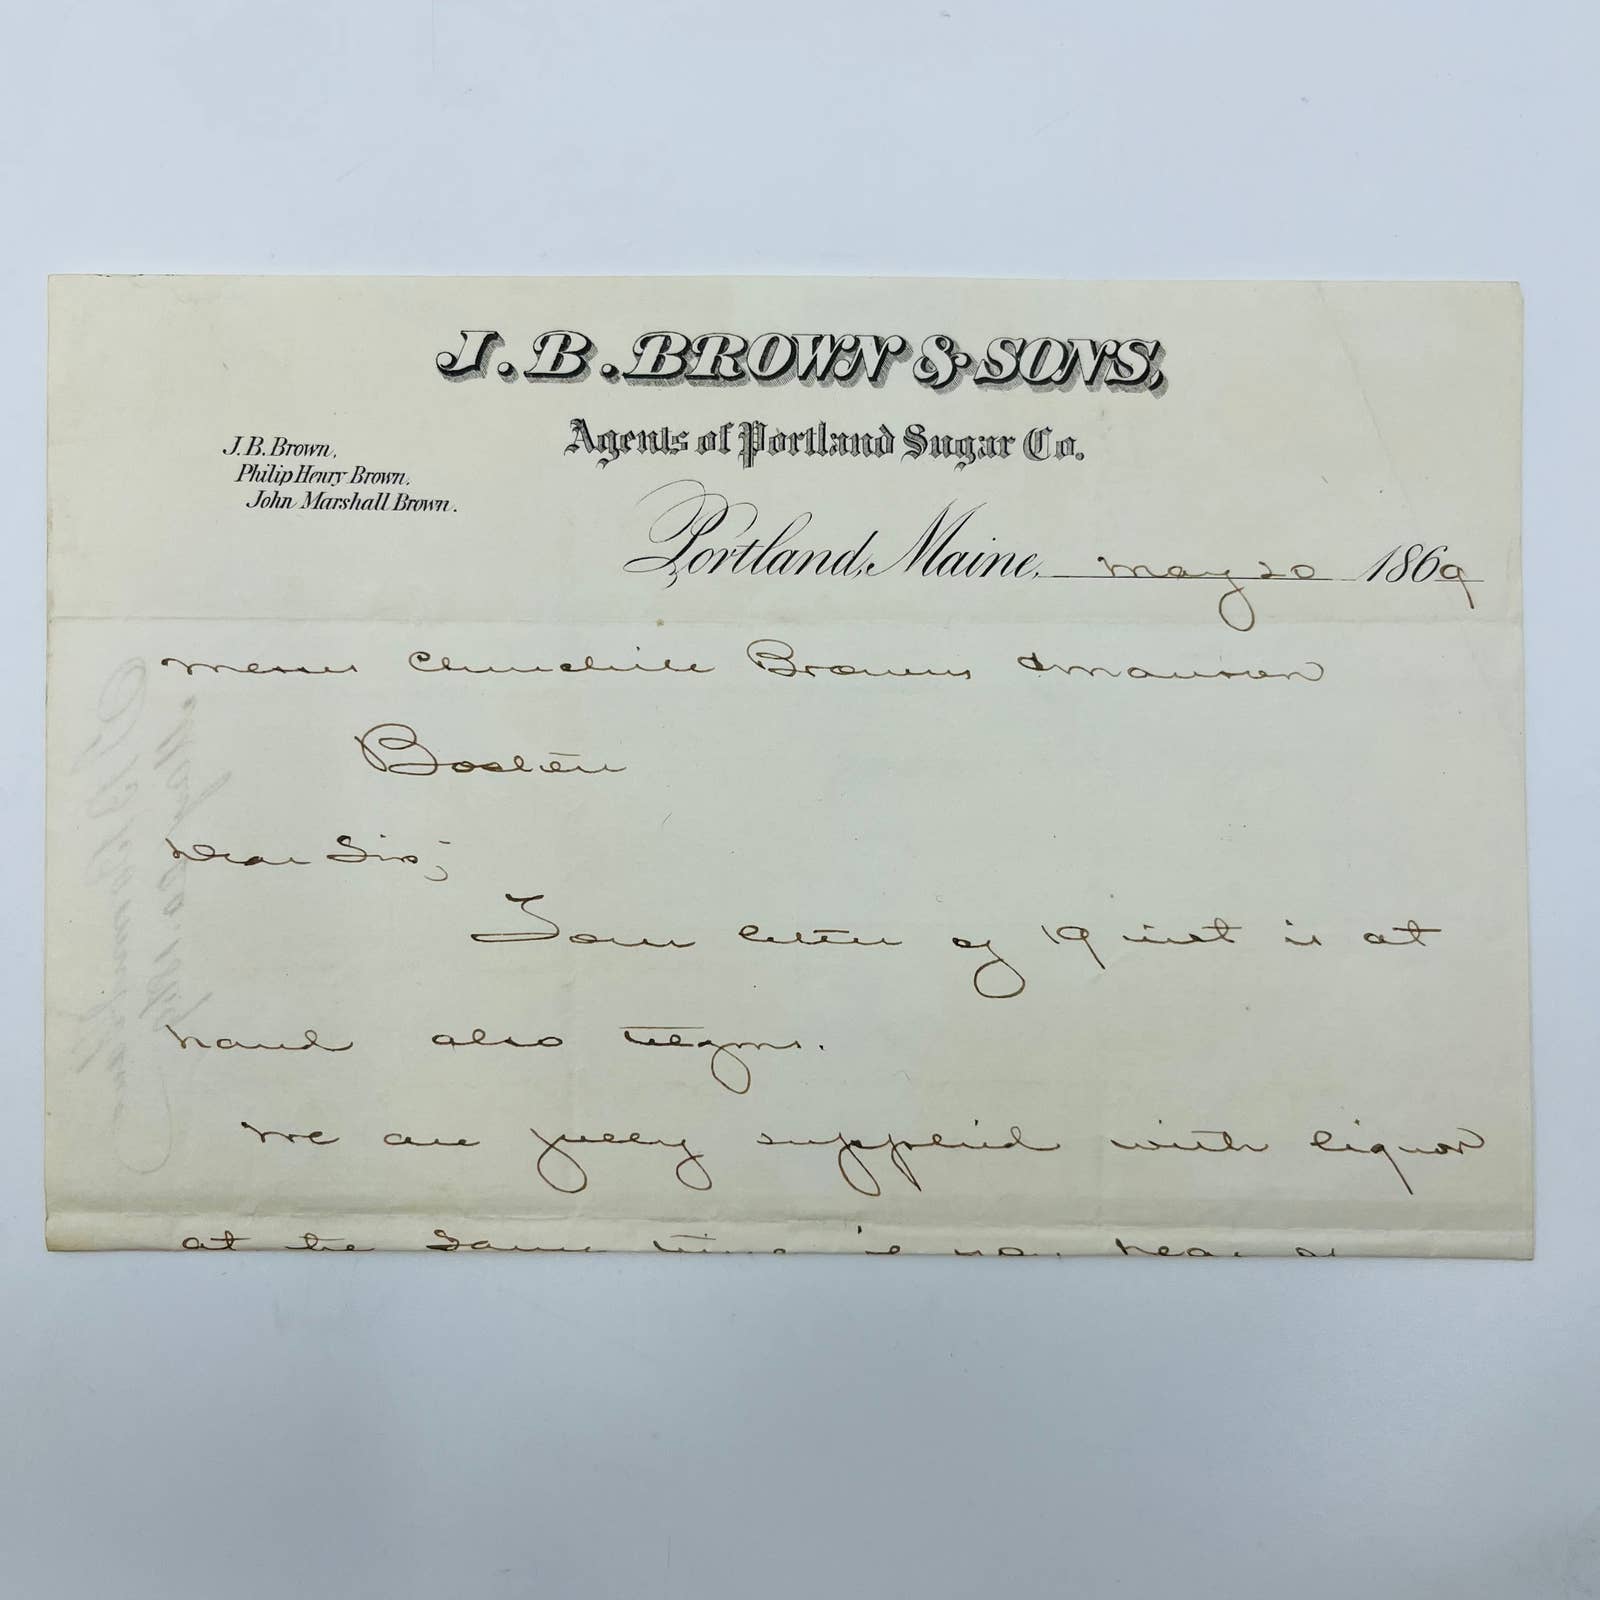 J. B. BROWN & SONS,
Agents of Portland Sugar Co.
J. B. Brown,
Philip Henry Brown.
John Marshall Brown.
Portland, Maine, May 20 1869
Messrs Churchill Browns & Manson
Boston
Dear Sirs;
Your letter of 19 inst is at
hand also telegms.
We are fully supplied with liquor
at the same time